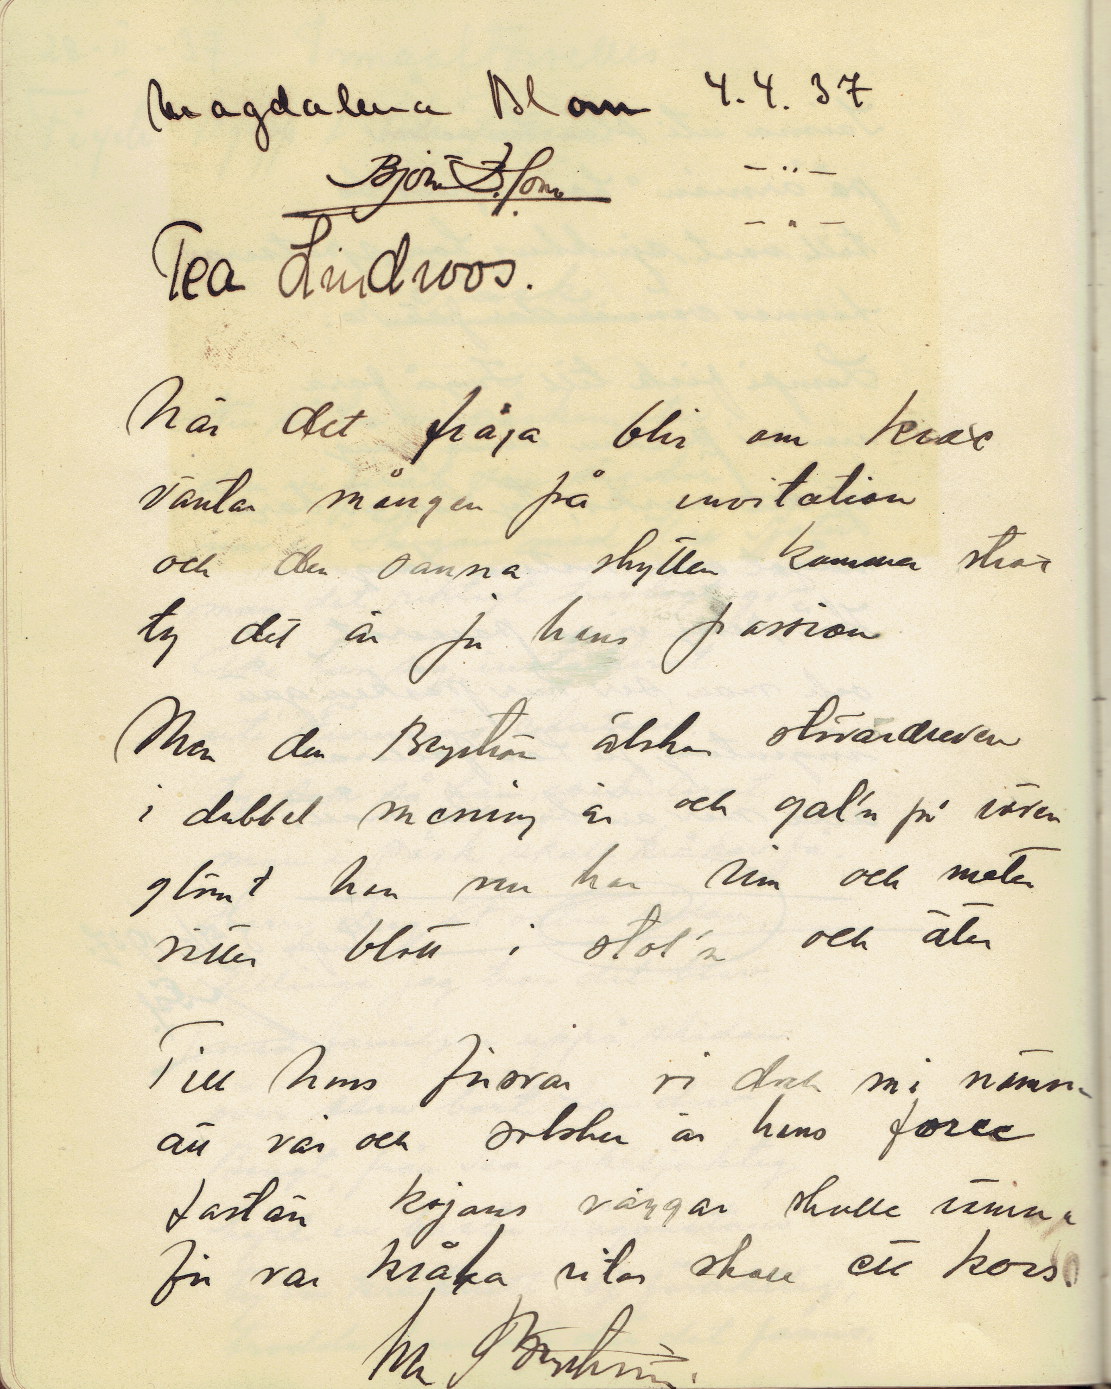 Magdalena Blom 4.4.37
Björn Blom — " —
Tea Lindroos. — " —
När det fråga blir om krax
väntar mången på invitation
och den sanna skytten kommer strax
ty det är ju hans passion
Men den Byström älskar stövardreven
i dubbel mening är och gal'n på
glömt han ren har rim och meter
sitter blott i stol'n och äter
Till hans försvar vi dock må nämna
att vår och solsken är hans force
fastän kojans väggar skulle rämna
för var kråka ritas skall ett kors
Byström